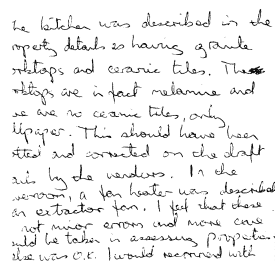 he kitchen was described in the
roperty details as having granite
rktops and ceramic tiles. The
rktops are in fact melamine and
re are no ceramic tiles, only
llpaper. This should have been
tted and corrected on the draft
ails by the vendors. In the
a fan heater was described
an extractor fan. I feel that these
not minor errors and more care
uld be taken in assessing properties.
else was O.K. I would recommend with